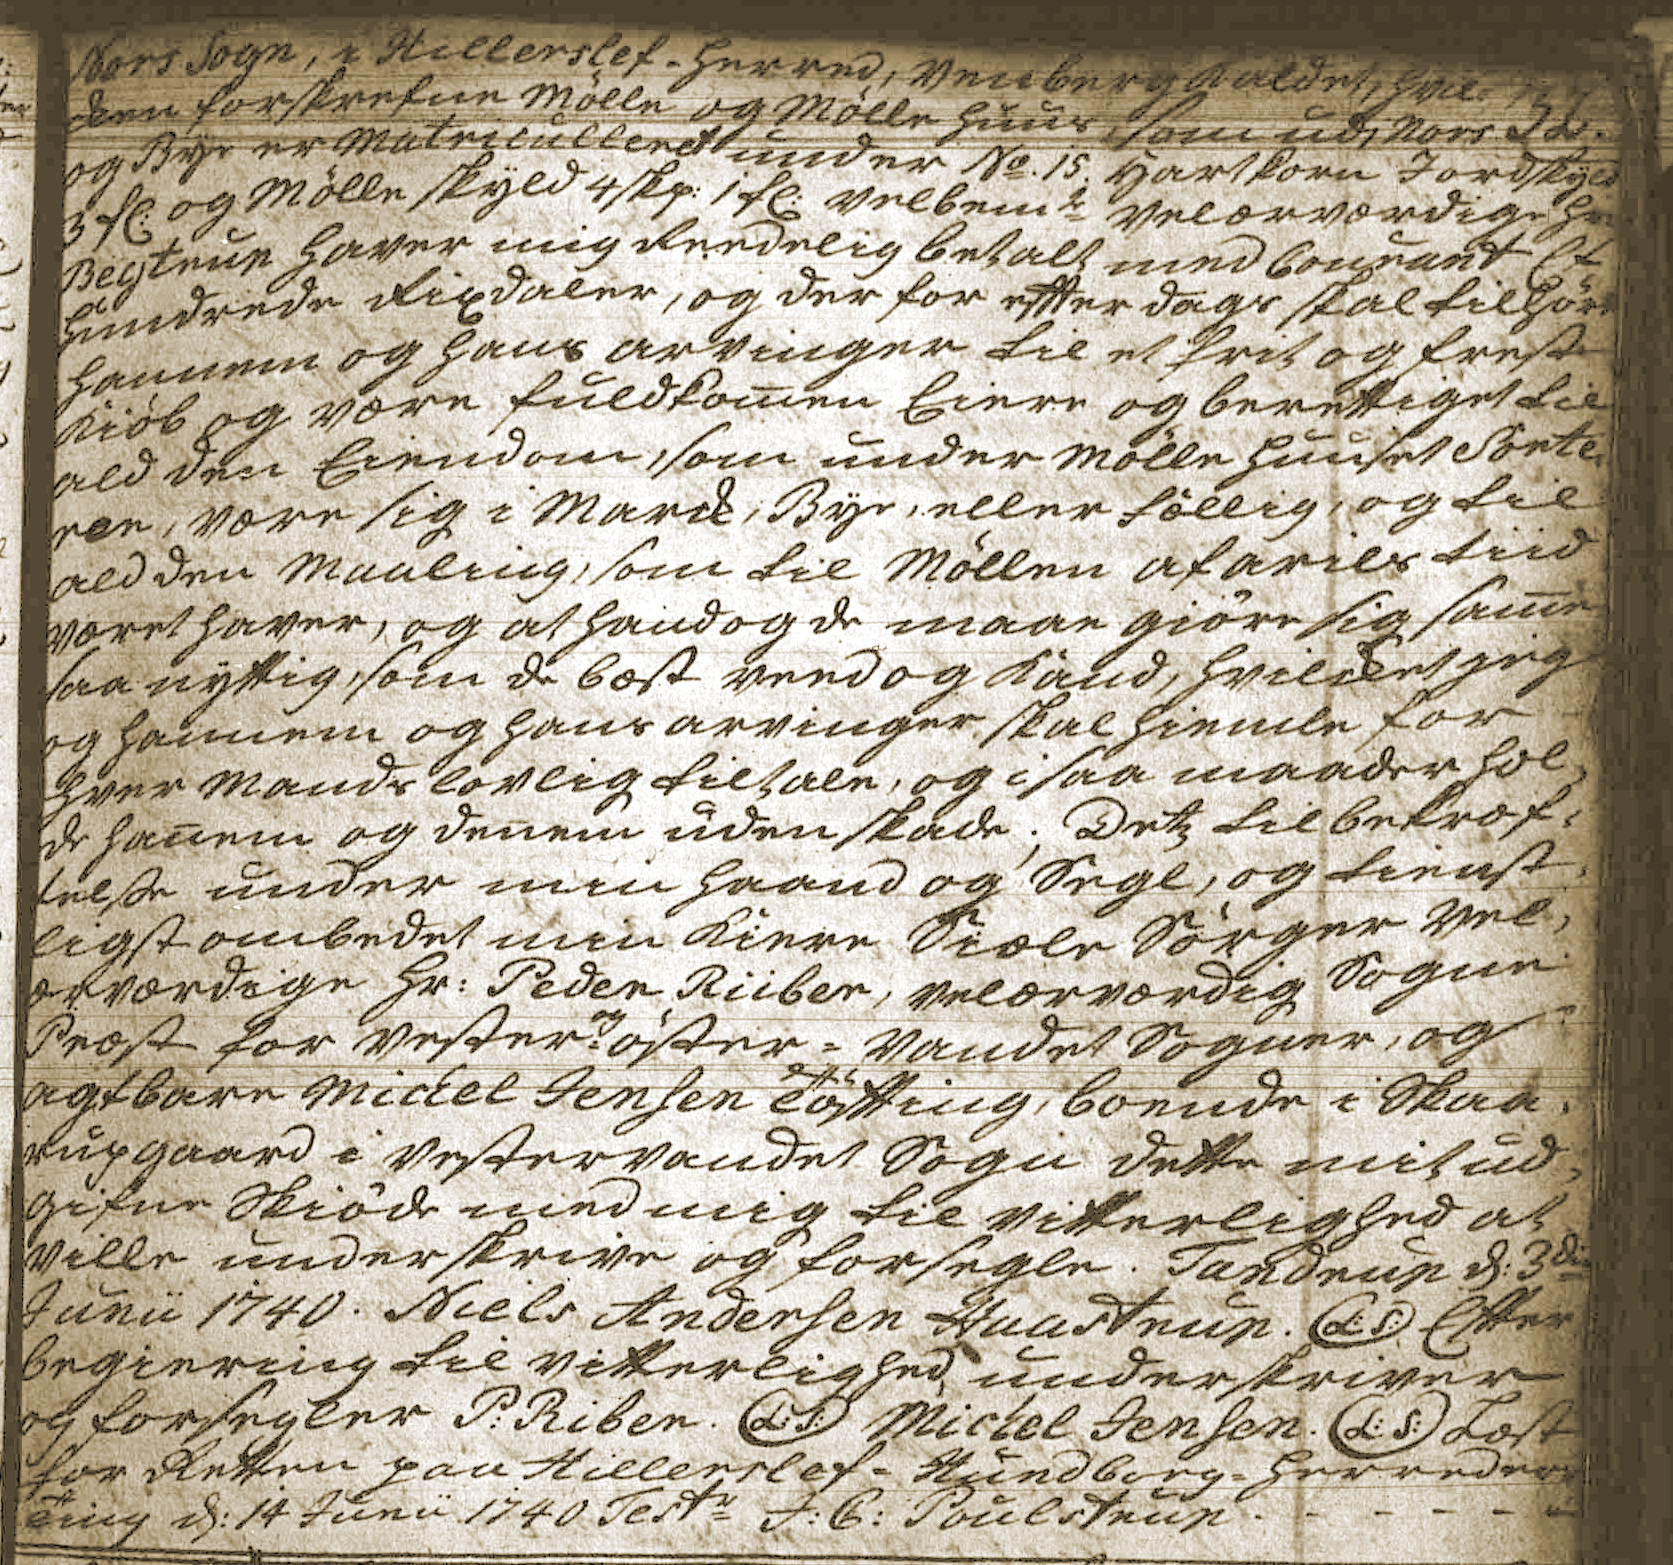 Nors Sogn, i Hillerslef-Herred, Venberg Kaldet, hvil-
den forskrefne Mölle og Mölle huus, som udi Nors
og Bye er Matriculleret under No. 15. Hartkorn Jordskyld
3 fl: og Mölle skyld 4 skp: 1 fl: velbemte velærværdige Hr.
Begtrup haver mig Reedelig betalt med Courant Et
hundrede Rixdaler, og der for efter dags skal tilhöre
hannem og hans arvinger til et frit og frest
Kiöb og være fuldkomen Eiere og berettiget til
ald den Eiendom, som under Mölle huuset Sorte-
ree, være sig i Marck, Bye, eller fællig, og til
ald den Maaling, som til Möllen af arilds tiid
været haver, og at hand og de maae giöre sig same
saa nyttig, som de best veed og Kand, hvilcket jeg
og hannem og hans arvinger skal hiemle for
hver Mands lovlig tiltale, og i saa maader hol-
de hanem og denem uden skade. Detz til bekræf-
telse under min haand og Segl, og tienst-
ligst ombedet min Kiere Siæle Sörger Vel-
ærværdige Hr: Peder Riiber, velærværdig Sogne
Præst for Vester- og öster-Vandet Sogner, og
agtbare Michel Jensen Töfting, boende i Skaa-
rupgaard i Vestervandet Sogn dette mit ud-
gifne Skiöde med mig til vitterlighed at
ville underskrive og forsegle. Tandrup d: 3die
Junii 1740. Niels Andersen Haastrup. (L:S:) Efter
begiering til vitterlighed underskriver
og forsegler P: Riber. (L:S:) Michel Jensen. (L:S:) Læst
for Retten paa Hillerslef-Hundborg-Herreders
ting d: 14 Junii 1740 Testr J: C: Poulstrup. - - - - -